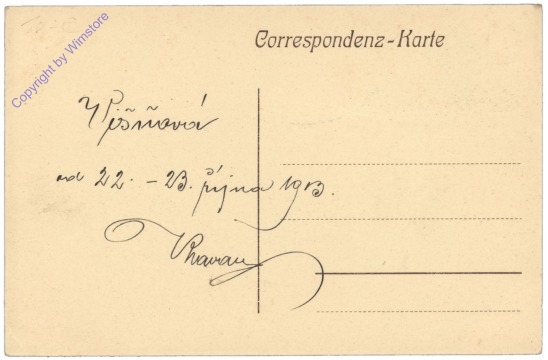 Correspondenz-Karte
Copyright by Wimstore
Višňová
od 22. - 23. října 1903.